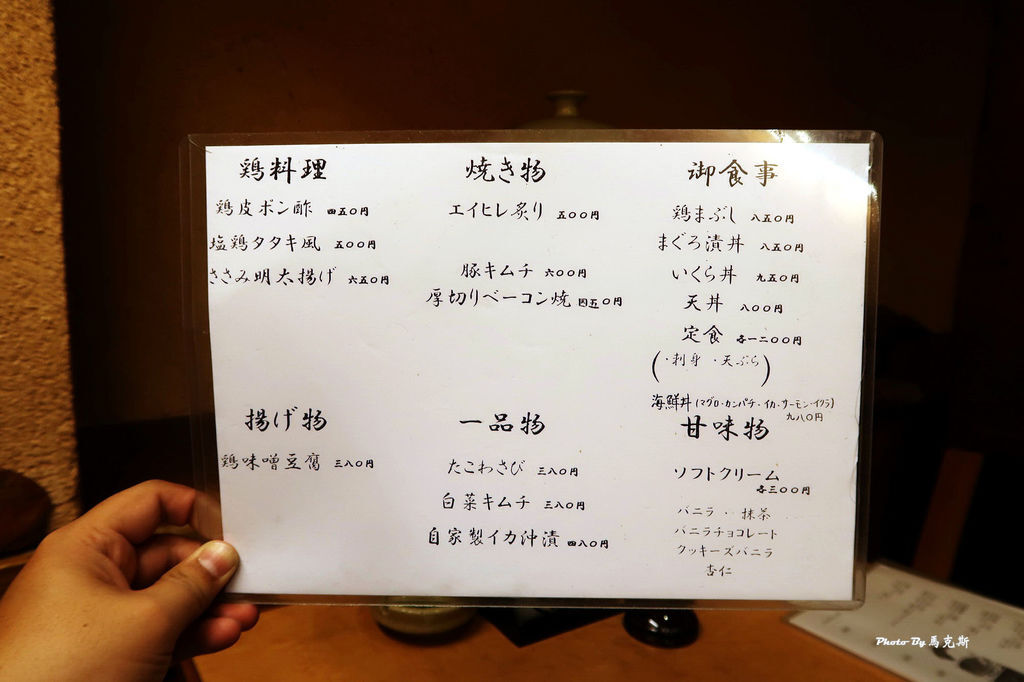 鶏料理
鶏皮ポン酢 四五〇円
塩鶏タタキ風 五〇〇円
ささみ明太揚げ 六五〇円
焼き物
エイヒレ炙り 五〇〇円
豚キムチ 六〇〇円
厚切りベーコン焼 四五〇円
御食事
鶏まぶし 八五〇円
まぐろ漬丼 八五〇円
いくら丼 九五〇円
天丼 八〇〇円
定食 各一二〇〇円
(・刺身 ・天ぷら)
海鮮丼(マグロ・カンパチ・イカ・サーモン・イクラ)
九八〇円
揚げ物
鶏味噌豆腐 三八〇円
一品物
たこわさび 三八〇円
白菜キムチ 三八〇円
自家製イカ沖漬 四八〇円
甘味物
ソフトクリーム
各三〇〇円
バニラ・抹茶
バニラチョコレート
クッキーズバニラ
杏仁
Photo By 馬克斯